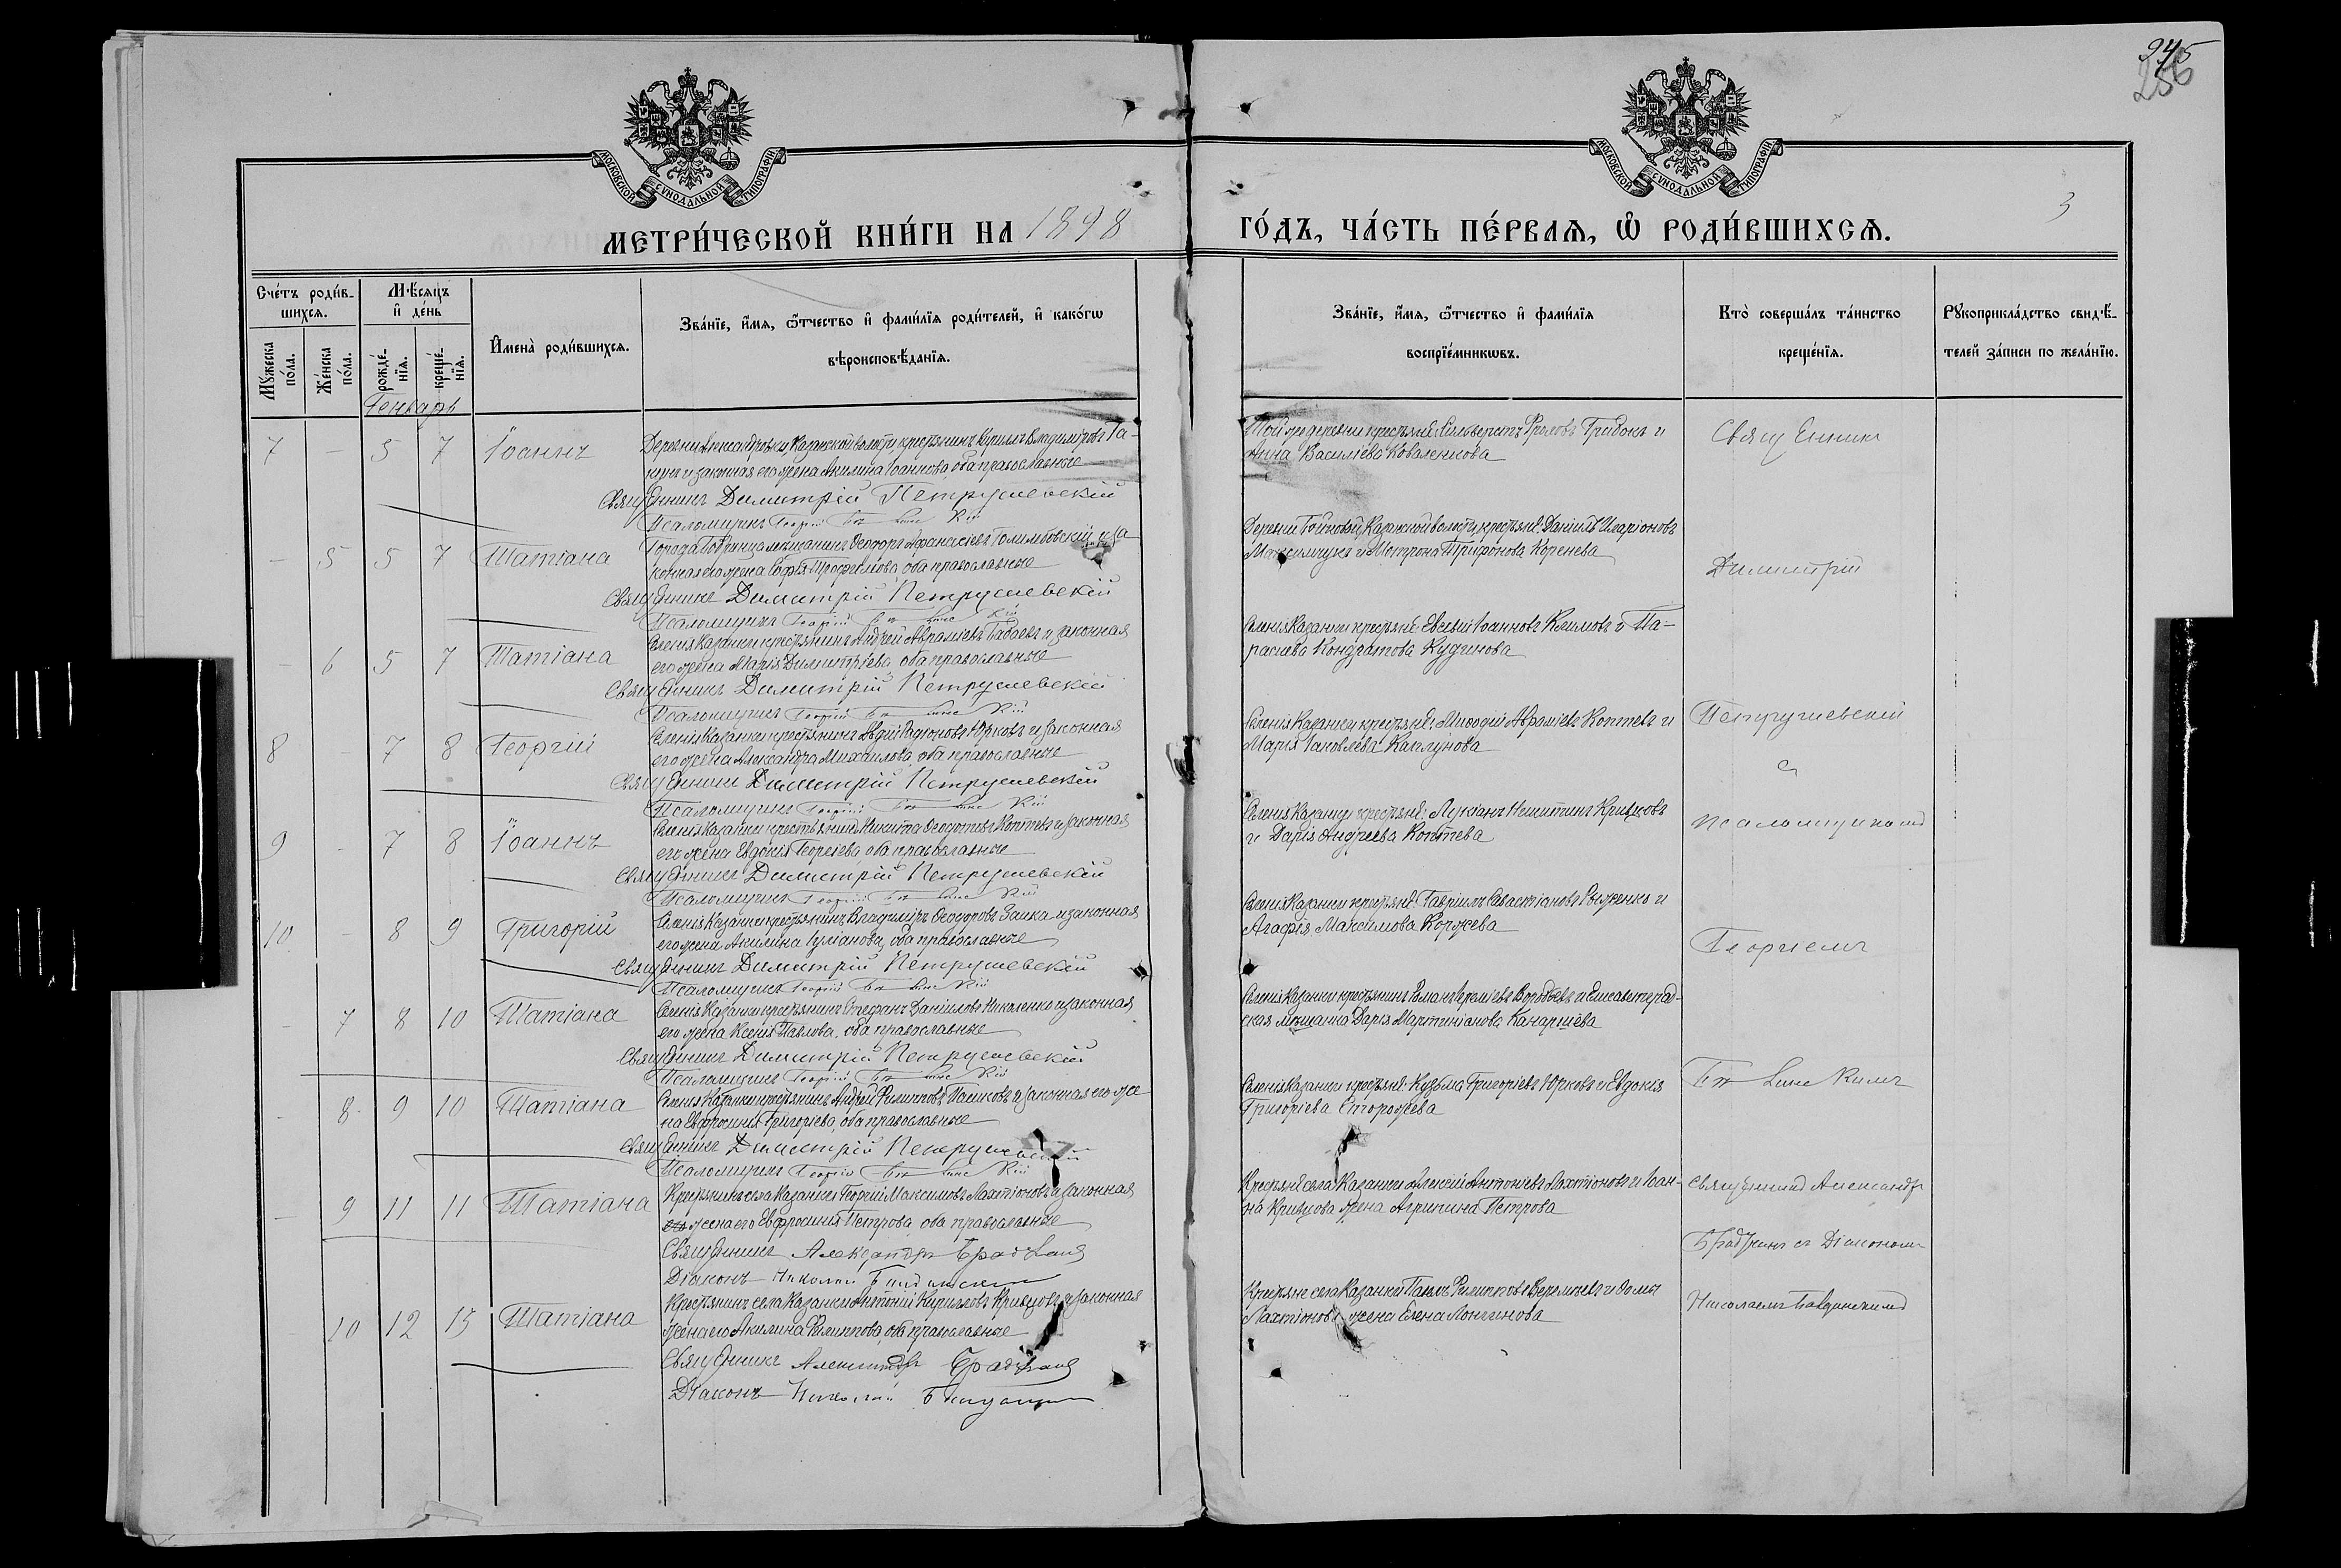 945
256
МОСКОВСКОЙ СУНОДАЛЬНОЙ ТИПОГРАФІИ
МОСКОВСКОЙ СУНОДАЛЬНОЙ ТИПОГРАФІИ
3
МЕТРИ́ЧЕСКОЙ КНИ́ГИ НА 1898
ГО́ДЪ, ЧА́СТЬ ПЕ́РВАѦ, Ѡ҆ РОДИ́ВШИХСѦ.
Сче́тъ роди́в-
шихсѧ.
Мѣ́сѧцъ
и҆ де́нь
Мꙋ́жеска по́ла.
Же́нска по́ла.
рожде́-нїѧ.
креще́-нїѧ.
И҆мена̀ роди́вшихсѧ.
Зва́нїе, и҆́мѧ, ѻ҆́тчество и҆ фами́лїѧ роди́телей, и҆ како́гѡ
вѣроисповѣ́данїѧ.
Зва́нїе, и҆́мѧ, ѻ҆́тчество и҆ фами́лїѧ
воспрїе́мникѡвъ.
Кто̀ соверша́лъ та́инство
креще́нїѧ.
Рꙋкоприкла́дство свидѣ́-
телей за́писи по жела́нїю.
Генварь
7 - 5 7 Іоаннъ
Деревни Александровки, Казанской волости, крестьянинъ Кириллъ Владиміровъ Га-
и законная его жена Акилина Іоаннова, оба православные
Священникъ Димитрій Петрушевскій
Псаломщикъ Георгій
Той же деревни крестьяне: Фроловъ Гридокъ и
Анна Василіева Коваленкова
Священникъ
- 5 5 7 Татіана
Города Бобринца мещанинъ Ѳеодоръ Афанасіевъ и за-
конная его жена Софія Трофимова, оба православные
Священникъ Димитрій Петрушевскій
Псаломщикъ Георгій
Деревни Казанской волости, крестьяне: Даніилъ Иларіоновъ
Максимчукъ и Матрона Трифонова Коренева
Димитрій
- 6 5 7 Татіана
Селенія Казанки крестьянинъ Андрей Авраміевъ и законная
его жена Марія Димитріева, оба православные
Священникъ Димитрій Петрушевскій
Псаломщикъ Георгій
Селенія Казанки крестьяне: Евсевій Іоанновъ Климовъ и Па-
раскева Кондратова Кудинова
Петрушевскій
8 - 7 8 Георгій
Селенія Казанки крестьянинъ Авдій Родіоновъ Юрковъ и законная
его жена Александра Михаилова, оба православные
Священникъ Димитрій Петрушевскій
Псаломщикъ Георгій
Селенія Казанки крестьяне: Меѳодій Авраміевъ Коптевъ и
Марія Іаковлева Каплунова
съ
9 - 7 8 Іоаннъ
Селенія Казанки крестьянинъ Никита Ѳеодотовъ Коптевъ и законная
его жена Евдокія Георгіева, оба православные
Священникъ Димитрій Петрушевскій
Псаломщикъ Георгій
Селенія Казанки крестьяне: Лукіанъ Никитинъ Кривцовъ
и Дарія Андреева Коптева
псаломщикомъ
10 - 8 9 Григорій
Селенія Казанки крестьянинъ Владиміръ Ѳеодоровъ Заика и законная
его жена Акилина Іуліанова, оба православные
Священникъ Димитрій Петрушевскій
Псаломщикъ Георгій
Селенія Казанки крестьяне: Гавріилъ Савастіановъ Рыженко и
Агафія Максимова Коржева
Георгіемъ
- 7 8 10 Татіана
Селенія Казанки крестьянинъ Стефанъ Даніиловъ Николенко и законная
его жена Ксенія Павлова, оба православные
Священникъ Димитрій Петрушевскій
Псаломщикъ Георгій
Селенія Казанки крестьянинъ Романъ Воробьевъ и Елисаветград-
ская мещанка Дарія Мартиніанова
- 8 9 10 Татіана
Селенія Казанки крестьянинъ Андрей Филипповъ Пашковъ и законная его же-
на Евфросинія Григоріева, оба православные
Священникъ Димитрій Петрушевскій
Псаломщикъ Георгій
Селенія Казанки крестьяне: Кузьма Григоріевъ Юрковъ и Евдокія
Григоріева Сторожева
- 9 11 11 Татіана
Крестьянинъ села Казанки Георгій Максимовъ Лахтіоновъ и законная
жена его Евфросинія Петрова, оба православные
Священникъ Александръ
Діаконъ Николай
Крестьяне села Казанки Алексій Антоніевъ Лахтіоновъ и Іоан-
на Кривцова жена Агрипина Петрова
Священникъ Александръ
съ Діакономъ
10 12 15 Татіана
Крестьянинъ села Казанки Антоній Кирилловъ Кривцовъ и законная
жена его Акилина Филиппова, оба православные
Священникъ Александръ
Діаконъ Николай
Крестьяне села Казанки Павелъ Филипповъ и Ѳомы
Лахтіонова жена Елена Лонгинова
Николаемъ